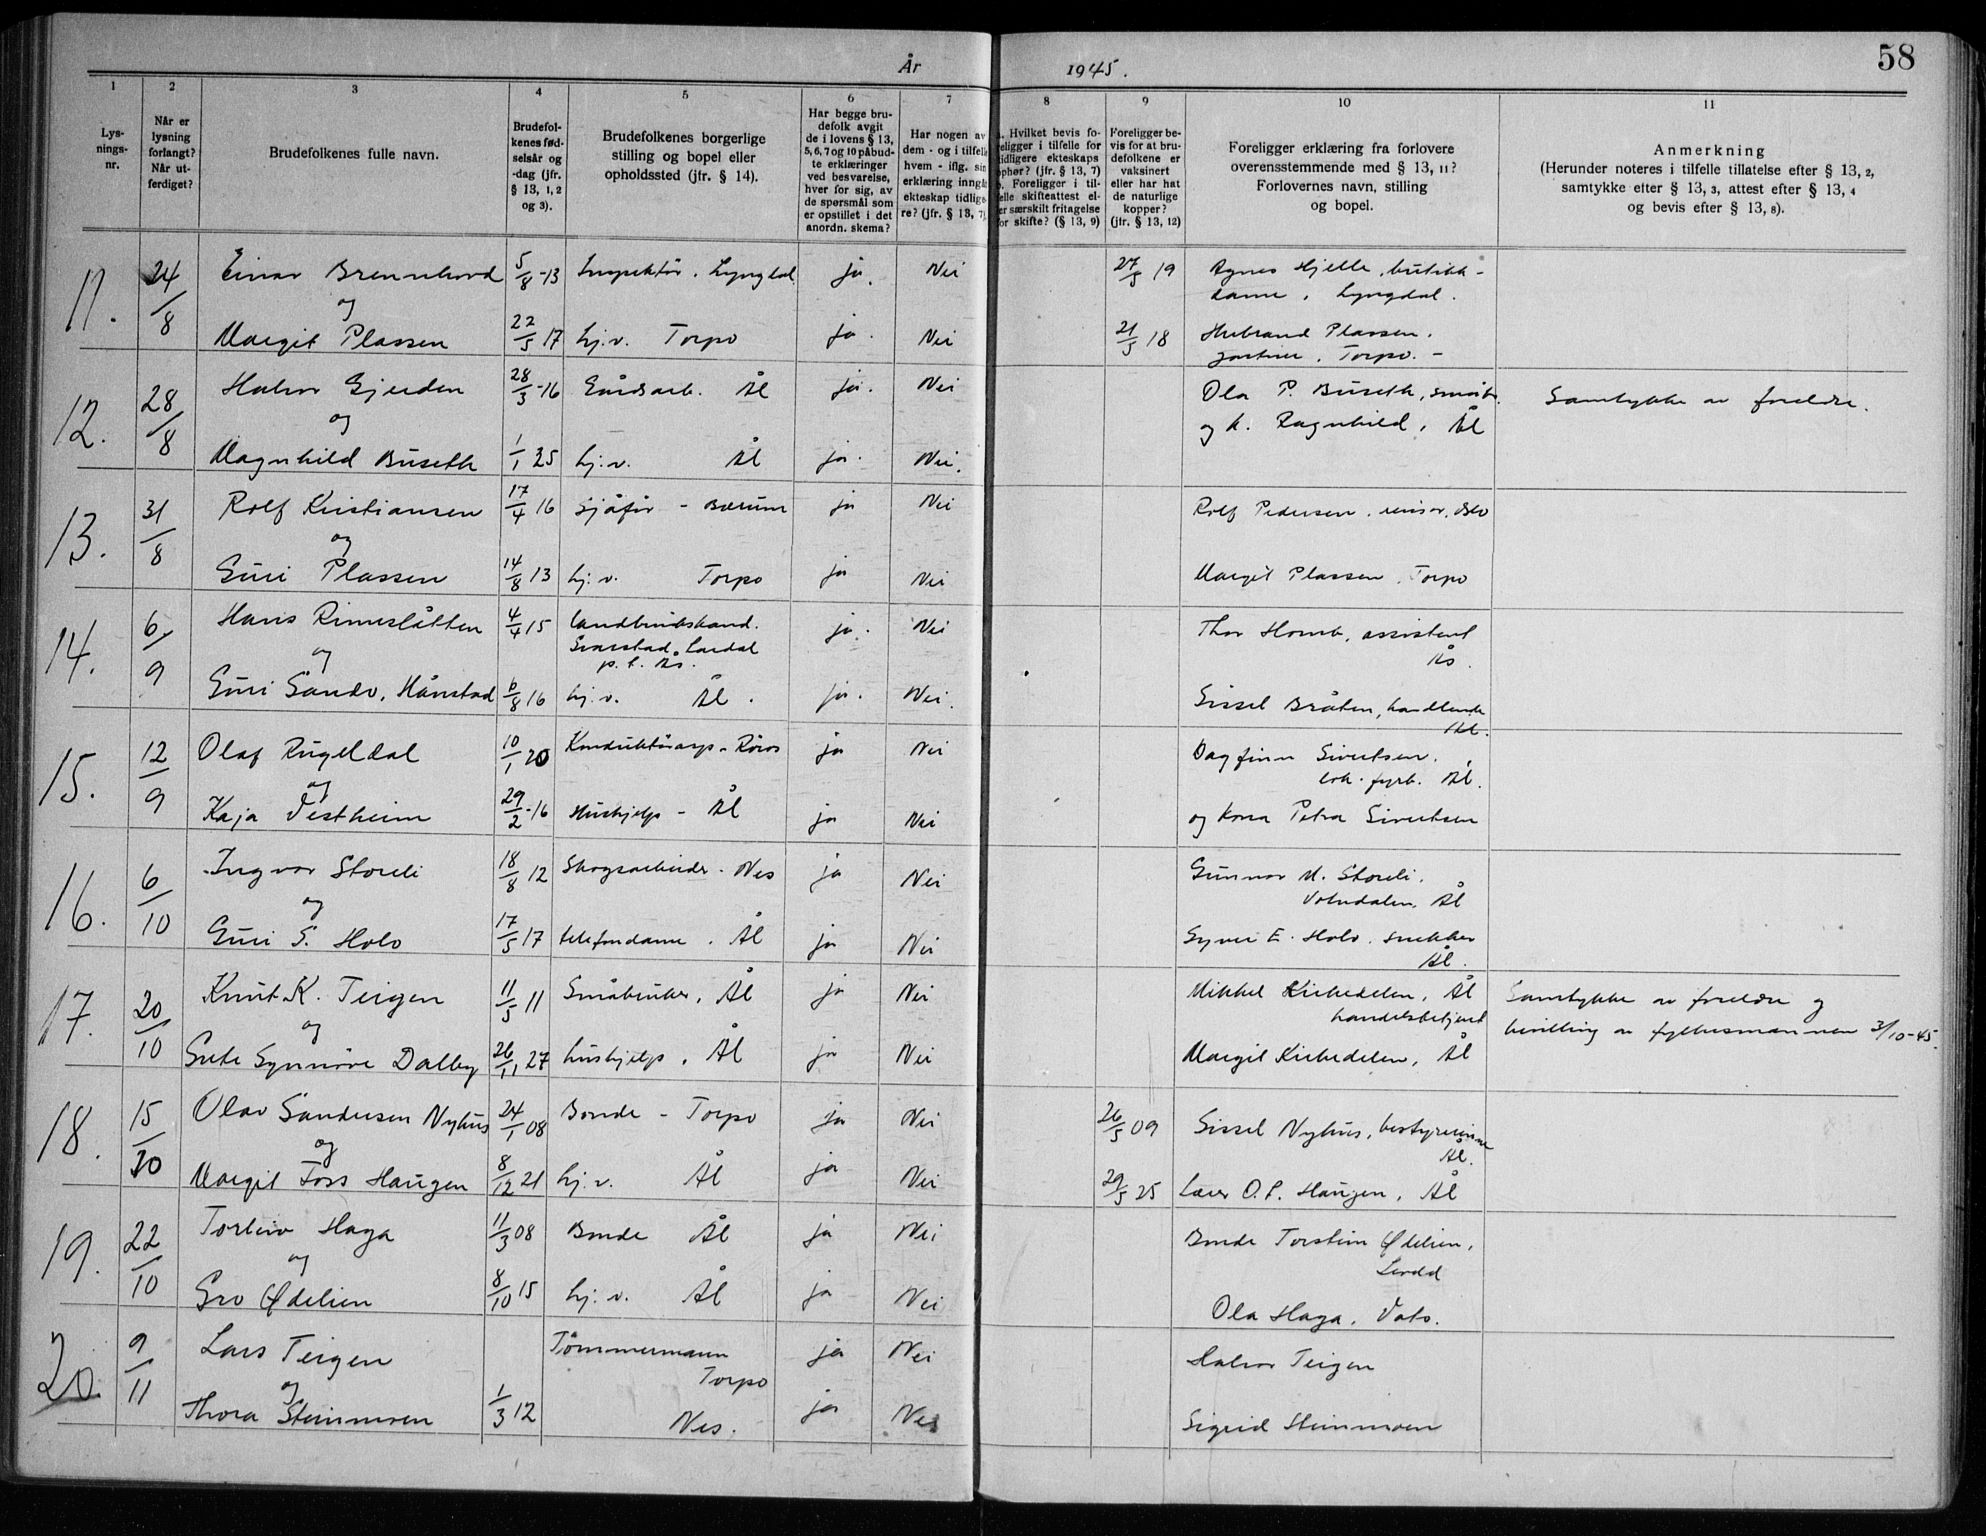 58
År 1945.
1
Lys-
nings-
nr.
2
Når er
lysning
forlangt?
Når ut-
ferdiget?
3
Brudefolkenes fulle navn.
4
Brudefol-
kenes fød-
selsår og
-dag (jfr.
§ 13, 1, 2
og 3).
5
Brudefolkenes borgerlige
stilling og bopel eller
opholdssted (jfr. § 14).
6
Har begge bru-
defolk avgit
de i lovens § 13,
5, 6, 7 og 10 påbud-
te erklæringer
ved besvarelse,
hver for sig, av
de spørsmål som
er opstillet i det
anordn. skema?
7
Har nogen av
dem - og i tilfelle
hvem - iflg. sin
erklæring inngåt
ekteskap tidlige-
re? (jfr. § 13, 7).
8
a. Hvilket bevis fo-
religger i tilfelle for
tidligere ekteskaps
ophør? (jfr. § 13, 7)
b. Foreligger i til-
felle skifteattest el-
ler særskilt fritagelse
for skifte? (§ 13, 9)
9
Foreligger be-
vis for at bru-
defolkene er
vaksinert
eller har hat
de naturlige
kopper?
(jfr. § 13, 12)
10
Foreligger erklæring fra forlovere
overensstemmende med § 13, 11?
Forlovernes navn, stilling
og bopel.
11
Anmerkning
(Herunder noteres i tilfelle tillatelse efter § 13, 2,
samtykke efter § 13, 3, attest efter § 13, 4
og bevis efter § 13, 8).
11. 24/8 Einar Brennhovd 5/8-13 Inspektør. Lyngdal ja. Nei 27/5 19 Agnes Hjelle, butikk-
og dame, Lyngdal.
Margit Plassen 22/5 17 hj.v. Torpo ja. Nei 21/5 18 Herbrand Plassen,
gartner, Torpo. -
12. 28/8 Halvor Gjerden 28/3-16 Gårdsarb. Ål ja. Nei Ola P. Buseth, småbr. Samtykke av foreldre.
og og k. Ragnhild, Ål
Magnhild Buseth 1/1 25 hj.v. Ål ja. Nei.
13. 31/8 Rolf Kristiansen 17/4 16 Sjåfør - Bærum ja Nei Rolf Pedersen, Oslo
og
Guri Plassen 14/8 13 hj.v. Torpo ja Nei Margit Plassen, Torpo
14. 6/9 Hans Rimeslåtten 4/4 15 landbrukskand. ja. Nei Thor Homb, assistent
og Svarstad, Lardal Ås.
p.t. Ås.
Guri Sandv. Hånstad 6/8 16 hj.v. Ål. ja. Nei. Sissel Bråten, handlende
Ål.
15. 12/9 Olaf Rugeldal 10/1 20 Konduktørasp - Röros ja Nei Dagfinn Sivertsen,
og lok. fyrb. Ål.
Kaja Vestheim 29/2-16 Hushjelp - Ål ja Nei og kona Petra Sivertsen
16. 6/10 Ingvar Storeli 18/8 12 Skogsarbeider - Nes ja Nei Gunnar M. Storeli,
og Votndalen, Ål
Guri S. Holo 17/5 17 telefondame. Ål ja Nei Syver E. Holo, snekker
Ål.
17. 20/10 Knut K. Teigen 11/5 11 Småbruker, Ål ja Nei Mikkel Kirkedelen, Ål Samtykke av foreldre og
og handelsbetjent bevilling av fylkesmannen 3/10-45.
Grete Synnöve Dalby 26/11 27 hushjelp, Ål ja Nei Margit Kirkedelen, Ål
18. 15/10 Olav Sandersen Nyhus 24/1 08 Bonde - Torpo ja Nei 26/5 09 Sissel Nyhus, bestyrerinne
og Ål.
Margit Foss Haugen 8/12 21 hj.v. Ål ja Nei 29/5 25 Lars O. P. Haugen, Ål
19. 22/10 Torleiv Haga 11/3 08 Bonde Ål ja Nei Bonde Torstein Ødelien,
og
Gro Ødelien 8/10 15 hj.v. Ål ja Nei Ola Haga, Vats.
20. 9/11 Lars Teigen Tømmermann ja Nei Halvor Teigen
og Torpo
Thora Steinmoen 1/3 12 Nes. ja Nei Sigrid Steinmoen